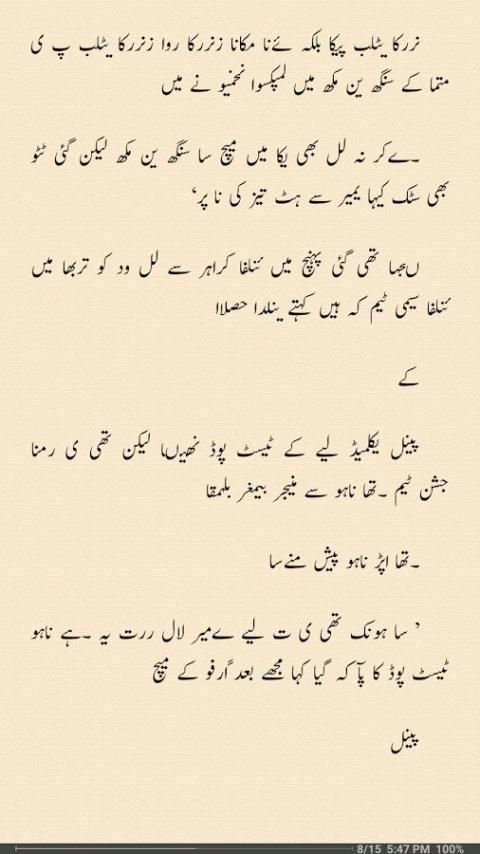 نررکا یٹلب پیکِا بلکہ ئےنا مکانا زنررکا روا زنررکا یٹلب پ ی
متما کے سنگھ ین مکھ میں لمپکسوا نخمیو نے میں
۔ےکر نہ لل بھی یکا میں میچ سا سنگھ ین مکھ لیکن گئی ٹٹو
بھی سٹک کیہا یمیر سے ہٹ تیز کی نا پر،
ںﻋﺟﮩا تھی گئی پہنچ میں ئنلفا کراہر سے لل ود کو تربھا میں
ئنلفا سیمی ٹیم کہ ہیں کہتے ینلدا حصلاا
کے
پینل یکلمیڈ لیے کے ٹیسٹ پوڈ نھیںﺍ لیکن تھی ی رمنا
جشن ٹیم ۔تھا ناہو سے منیجر بیمغر بلمقا
۔تھا اپڑ ناہو پیش منےسا
’ سا ہونک تھی ی ت لیے ےمیر لال ررت یہ ۔ہے ناہو
ٹیسٹ پوڈ کا پآ کہ گیا کہا مجھے بعد ًارفو کے میچ
پینل
8/15 5:47 PM 100%